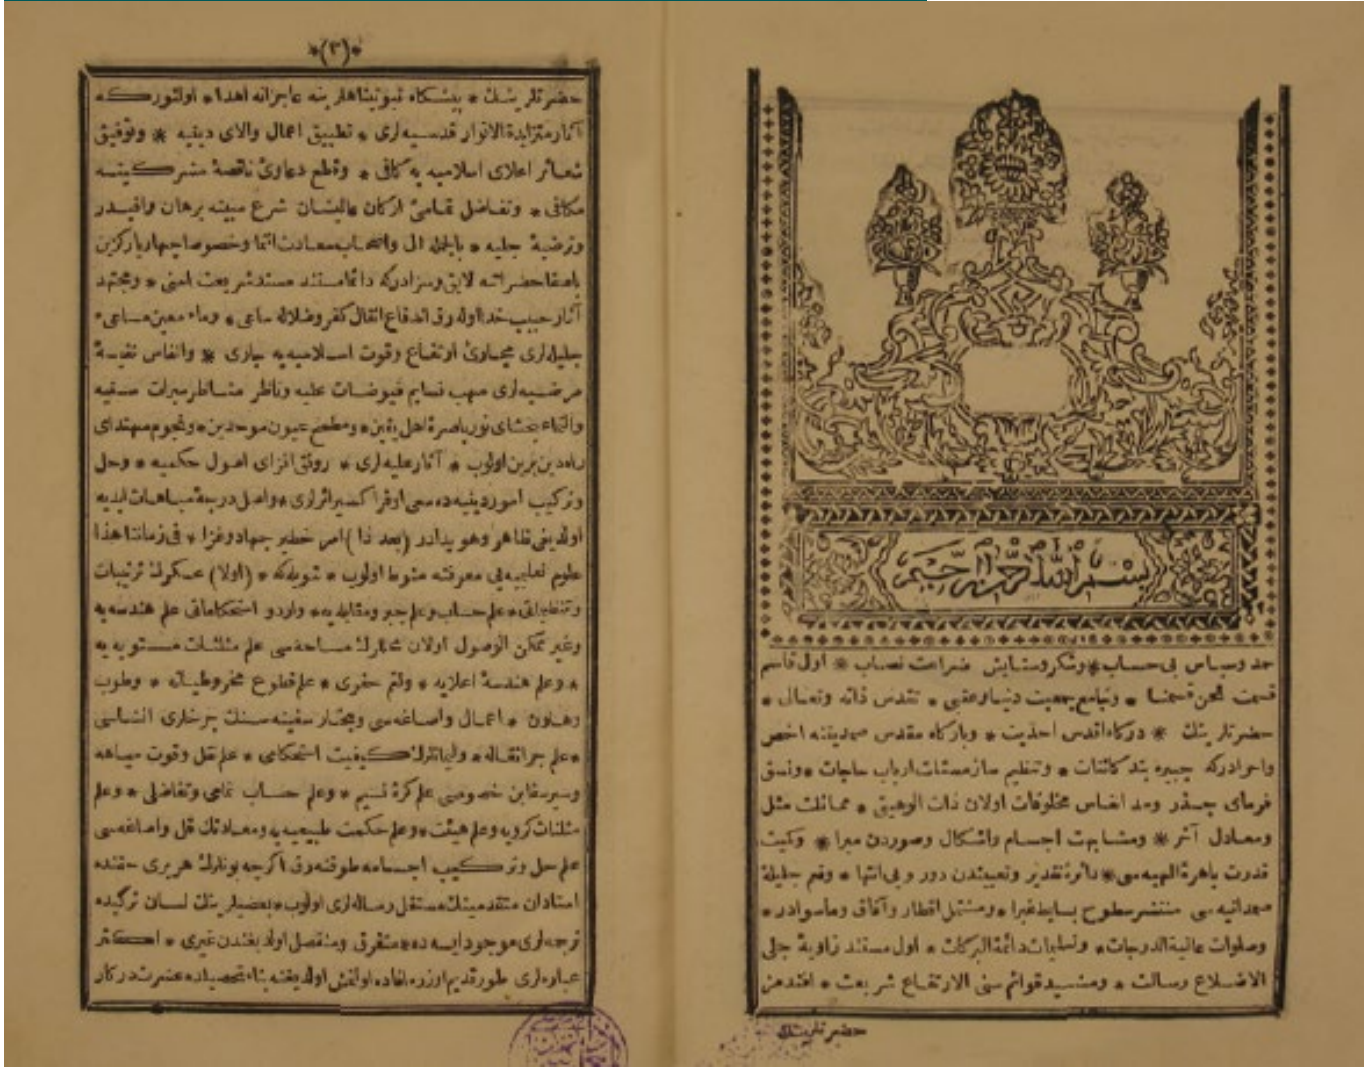 بسم الله الرحمن الرحيم
حمد وسپاس بی حساب * وشکر وستایش ضراعت نصاب * اول قاسم
قسمت نحن قسمنا * وجامع جمعیت دنیا وعقبی * تقدس ذاته وتعالی *
حضرتلرینك * درکاه اقدس احدیت * وبارکاه مقدس صمدیتنه اخص
واحرادرکه چیره بند کائنات * وتنظیم ساز مسئلات ارباب حاجات * ونسق
فرمای جذر ومد انفاس مخلوقات اولان ذات الوهیتی * مماثلت مثل
ومعادل آخر * ومشابهت اجسام واشکال وصوردن مبرا * وکیت
قدرت باهرۀ الهیه سی * دائرۀ تقدیر وتعییندن دور وبی انتها * وقم جلیلۀ
صمدانیه سی منتشر سطوح بسایط غبرا * ومشتمل اقطار وآفاق وماسوادر *
وصلوات عالیة الدرجات * وتسلیمات دائمة البرکات * اول مستند زاویۀ جلی
الاضلاع رسالت * ومشید قوائم سنی الارتفاع شریعت * افندمز
حضرتلرینك
*(٣)*
حضرتلرینك * پیشکاه نبوتپناهلرینه عاجزانه اهدا * اولنورکه
آثار متزایدة الانوار قدسیه لری * تطبیق اعمال والای دینیه * وتوفیق
شعائر اعلای اسلامیه یه کافی * وقطع دعاوئ ناقصۀ مشرکینه
مکافی * وتفاضل تمامئ ارکان عالیشان شرع مبینه برهان وافیدر
وترضیۀ جلیه * بالجمله آل واصحاب سعادت انتما وخصوصا چهار یار کزین
باصفا حضراتنه لایق وسزادرکه دائما مستند مسند شریعت امنی * ومجتهد
آثار حبیب خدا اوله رق اندفاع اثقال کفر وضلاله ساعی * وماء معین مساعئ
جلیله لری مجاری ارتفاع وقوت اسلامیه یه جاری * وانفاس نفیسۀ
مرضیه لری مهب نسایم فیوضات علیه وناظر مناظر مبرات سنیه
بخشای نور باصرۀ اهل یقین * ومطمح عیون موحدین * ونجوم مهتدای
راه دین مبین اولوب * آثار علیه لری * رونق افزای اصول حکمیه * وحل
وترکیب امور دینیه ده سعی اوفرا کسیر اثرلری * واصل درجۀ مباهات ابدیه
اولدیغی ظاهر وهویدادر (بعد ذا) امر خطیر جهاد وغزا * فی زماننا هذا
علوم تعلیمیه نی معرفته منوط اولوب * شویله که * (اولا) عسکرك ترتیبات
وتنظیماتی * علم حساب وعلم جبر ومقابله یه * واردو استحکاماتی علم هندسه یه
وغیر ممکن الوصول اولان محللرك مساحه سی علم مثلثات مستویه یه
* وعلم هندسۀ اعلایه * ولغم حفری * علم قطوع مخروطیاته * وطوب
وهاون * اعمال واصاغه سی ویحتار سفینه سنك چرخلری انشاسی
* علم جر اثقاله * ولیمانلرك کیفیت استحکامی * علم ثقل وقوت میاهه
وسیر سفاین خصوصی علم کرۀ نسیم * وعلم حساب تمامی وتفاضلی * وعلم
مثلثات کرویه وعلم هیئت * وعلم حکمت طبیعیه یه ومعادنك قال واصاغه سی
علم حل وترکیب اجسامه طوقنه رق اکرچه بونلرك هر بری حقنده
استادان متقدمینك مستقل رساله لری اولوب * بعضیلرینك لسان ترکیده
ترجمه لری موجود ایسه ده * متفرق ومنفصل اولدیغندن غیری * اکثر
عباره لری طور قدیم اوزره افاده اولنمش اولدیغنه بناء تحصیلده عسرت درکار